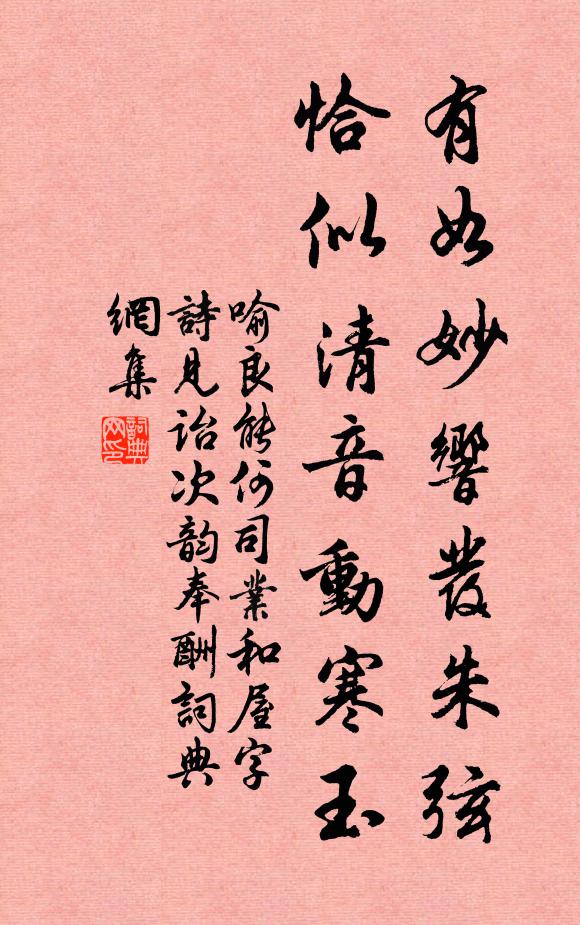 有如妙響發朱弦
恰似清音動寒玉
喻良能何司業和屋字
詩見詒次韵奉酬詞典
網集
詞典
网印